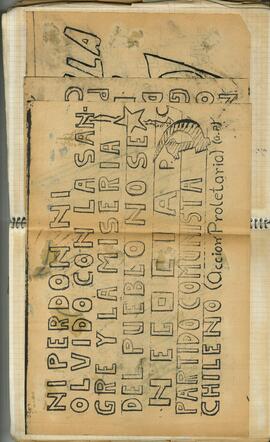 NI PERDON NI
OLVIDO CON LA SAN-
GRE Y LA MISERIA
DEL PUEBLO NO SE
NEGOCIA P.C
PARTIDO COMUNISTA
CHILENO (acción Proletaria) (a.p)